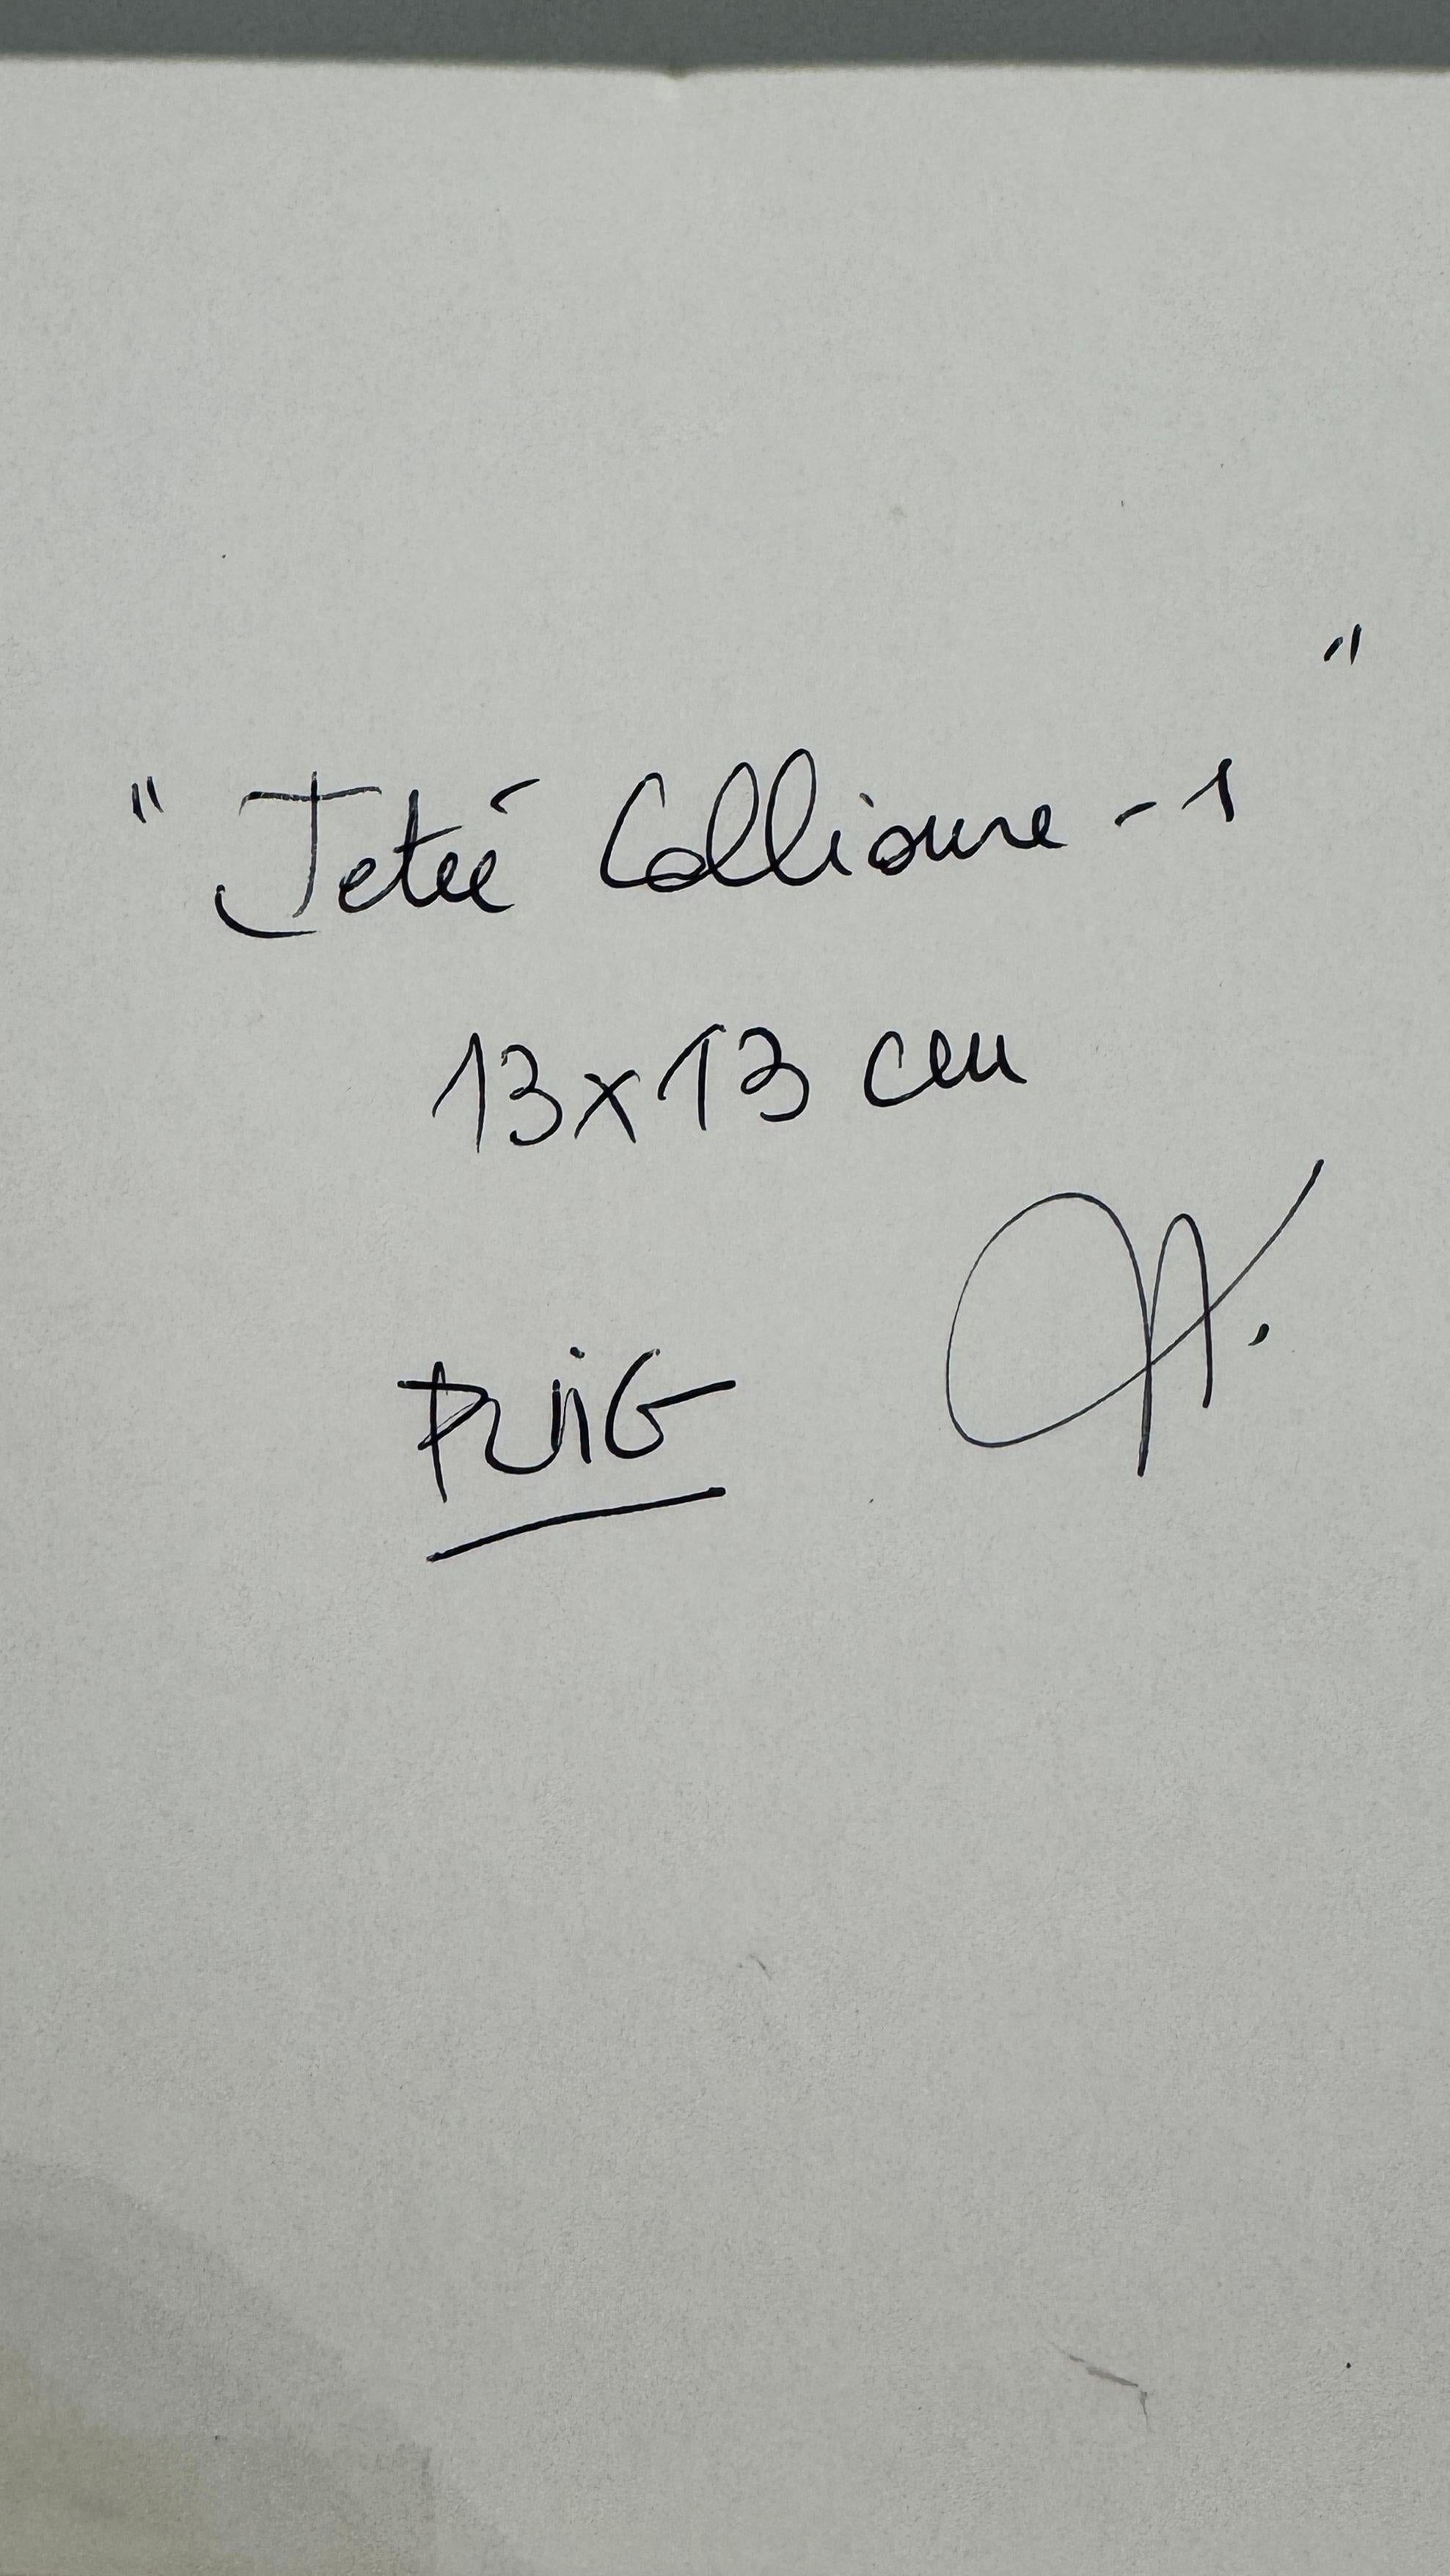 " Jetée Collioure - 1 "
13x13 cm
PUIG